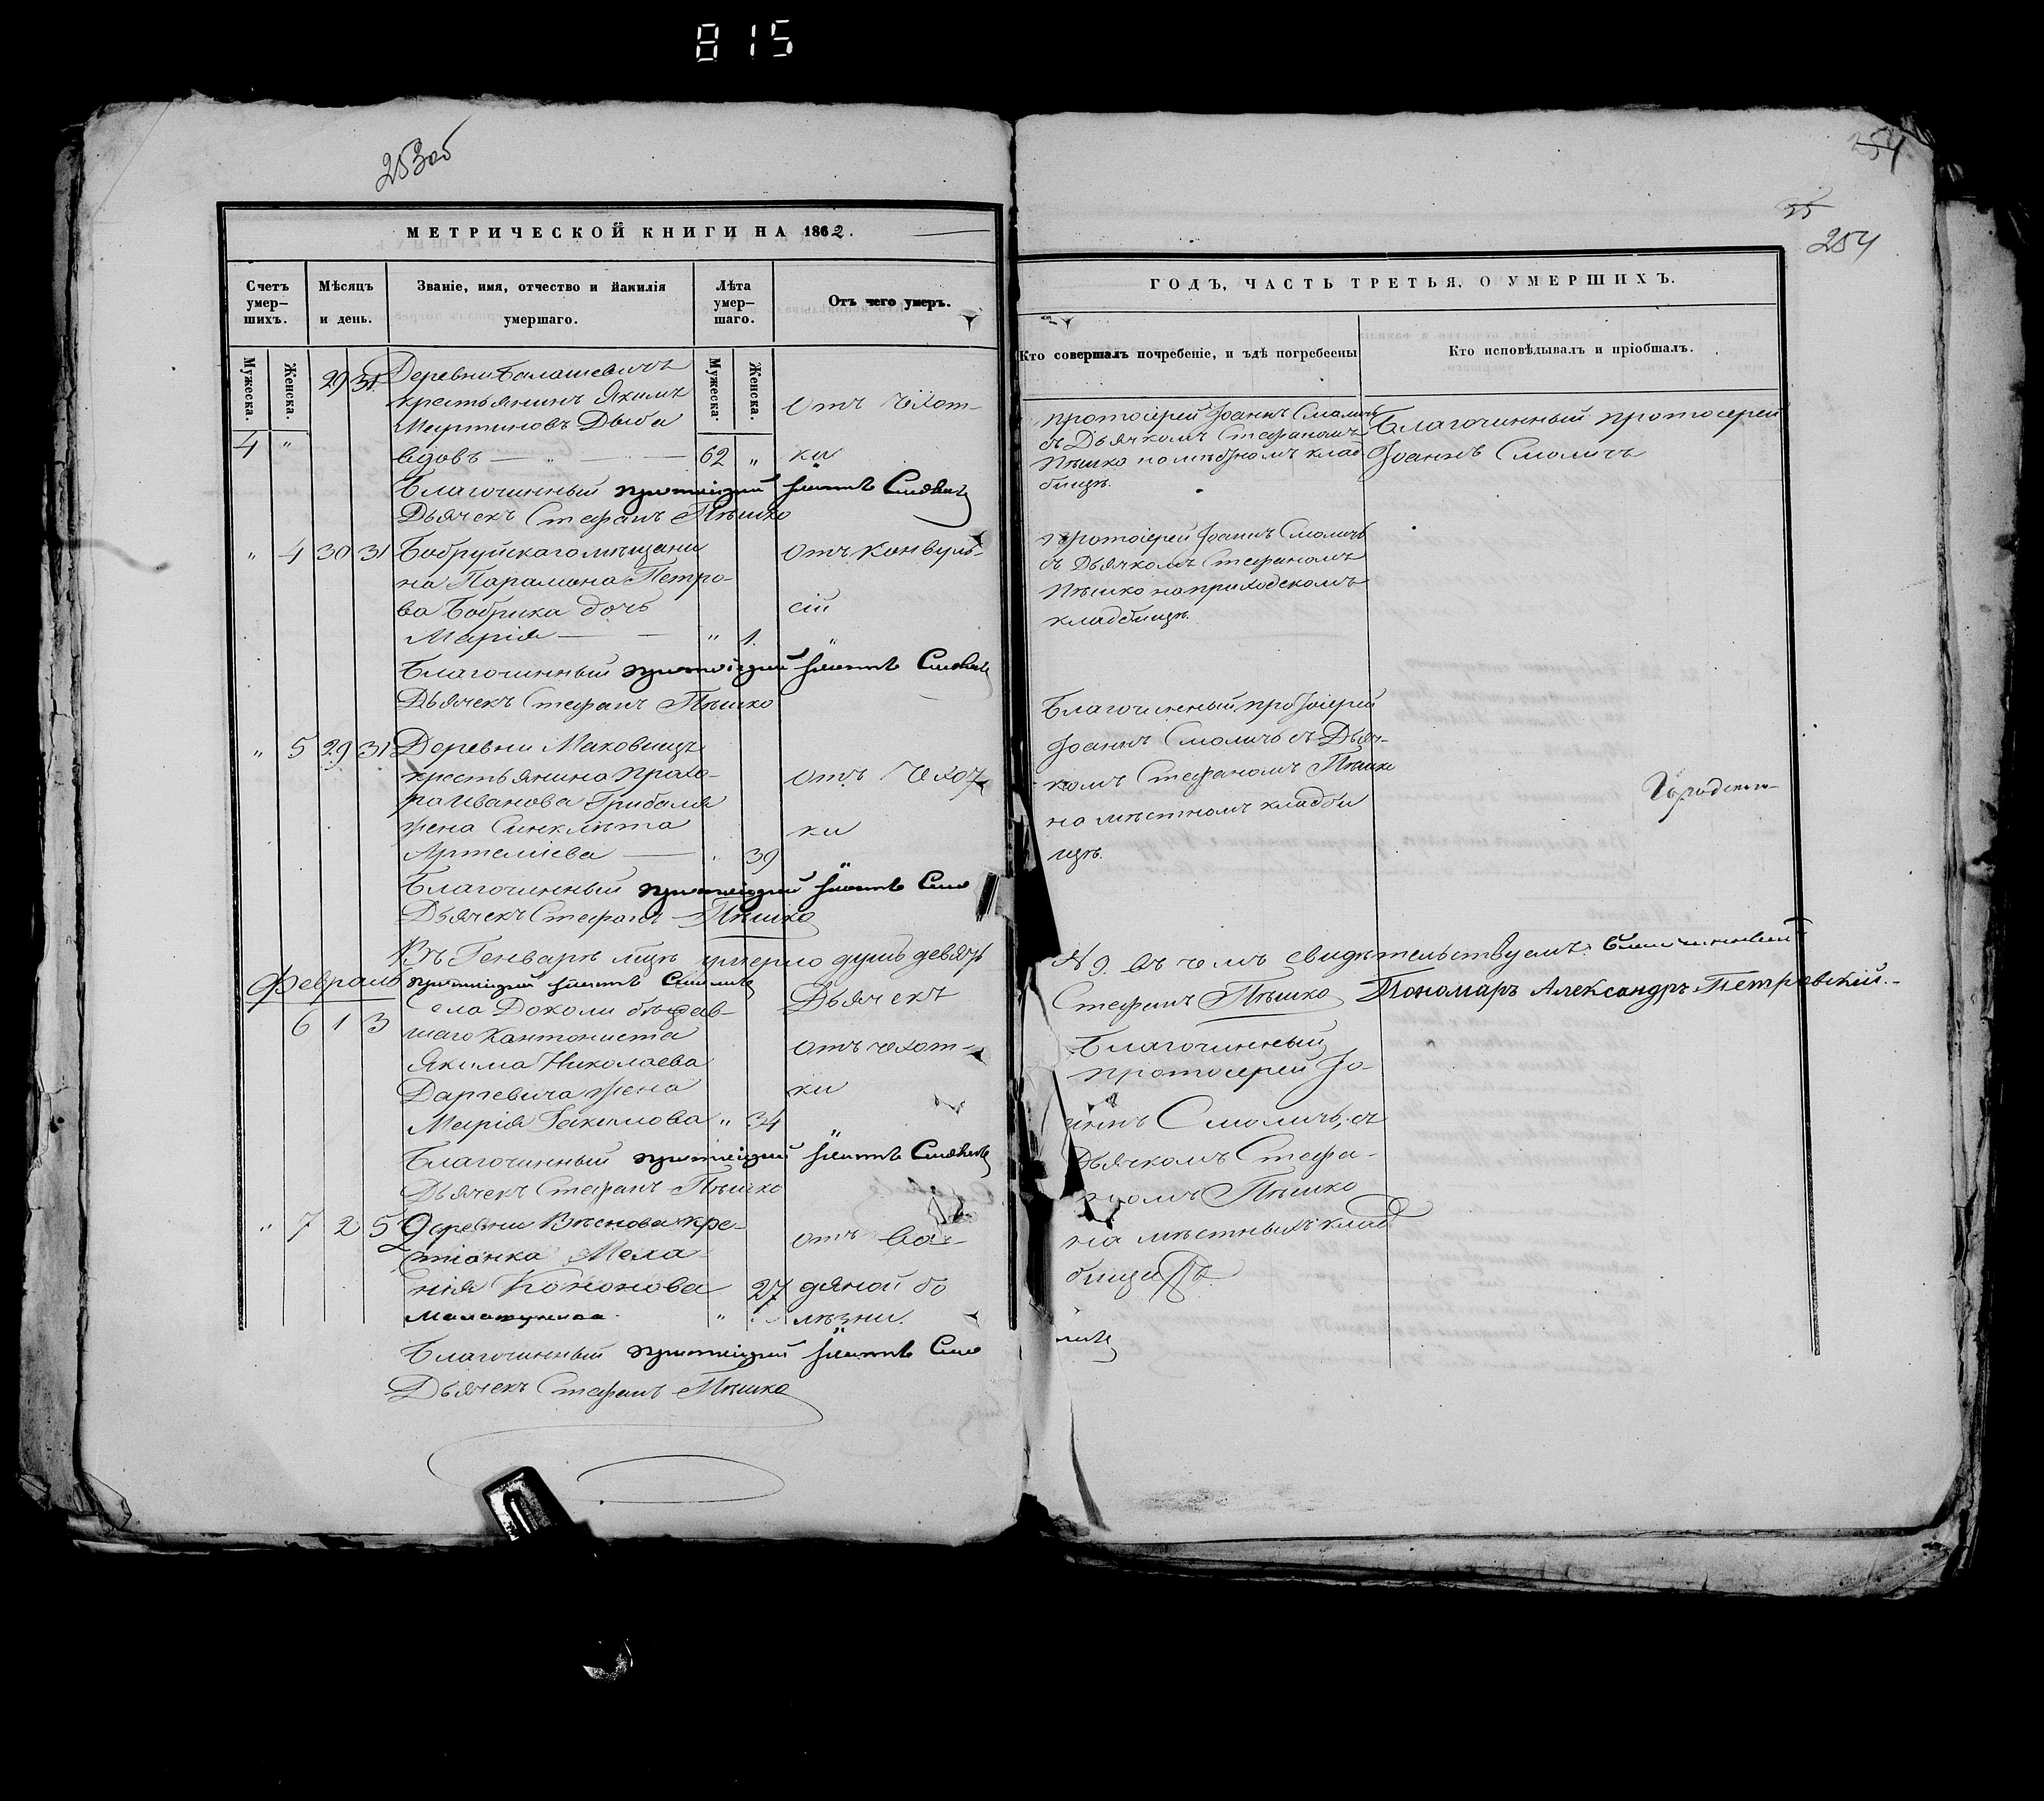 815
253об
МЕТРИЧЕСКОЙ КНИГИ НА 1862.
Счетъ умер-шихъ.
Мѣсяцъ и день.
Званіе, имя, отчество и
умершаго.
Лѣта умер-шаго.
Отъ чего умеръ.
Мужеска.
Женска.
Мужеска.
Женска.
29 31 Деревни Балашевичъ
крестьянинъ Якимъ
Мартиновъ Дыба
Отъ чахот-
4 " вдовъ 62 " ки
Благочинный протоіерей Іоаннъ Смоличъ
Дьячекъ Стефанъ Пѣшко
" 4 30 31 Бобруйскаго мѣщани
Отъ конвуль-
на Парамона Петро-
ва Бобрика дочь
сіи
Марія " 1.
Благочинный протоіерей Іоаннъ Смоличъ
Дьячекъ Стефанъ Пѣшко
" 5 29 31 Деревни Маковищъ
крестьянина Прохо-
отъ чахот
ра Иванова Грибаля
жена Синклѣта
ки
Артеміева 39
Благочинный протоіерей Іоаннъ Смо
Дьячекъ Стефанъ Пѣшко
Въ Генварѣ мцѣ умерло душъ девять
Февраль
протоіерей Іоаннъ Смоличъ
Дьячекъ
6 1 3 Села Доколи бывш
шаго Кантониста
Якима Николаева
отъ чахот-
Даргевича жена
ки
Марія Іакимова " 34
Благочинный протоіерей Іоаннъ Смоличъ
Дьячекъ Стефанъ Пѣшко
" 7 2 5 Деревни Вѣснова кре-
отъ во-
стіянка Мела-
нія Кононова 27 дяной бо
" лѣзни.
Благочинный протоіерей Іоаннъ Смо
Дьячекъ Стефанъ Пѣшко
254
35
254
ГОДЪ, ЧАСТЬ ТРЕТЬЯ, О УМЕРШИХЪ.
Кто совершалъ погребеніе, и гдѣ погребены
Кто исповѣдывалъ и пріобщалъ.
протоіерей Іоаннъ Смоличъ
съ Дьячкомъ Стефаномъ
Пѣшко на мѣстномъ клад
бищѣ.
Благочинный протоіерей
Іоаннъ Смоличъ
протоіерей Іоаннъ Смоличъ
съ Дьячкомъ Стефаномъ
Пѣшко на приходскомъ
кладбищѣ.
Благочинный протоіерей
Іоаннъ Смоличъ съ Дьяч-
комъ Стефаномъ Пѣшко
на мѣстномъ кладби
щѣ.
N 9. въ чемъ свидѣтельствуемъ: Благочинный
Стефанъ Пѣшко Пономаръ Александръ Петровскій.
Благочинный
протоіерей Іо-
аннъ Смоличъ, съ
Дьячкомъ Стефа-
номъ Пѣшко
на мѣстныхъ клад
бищахъ
личъ